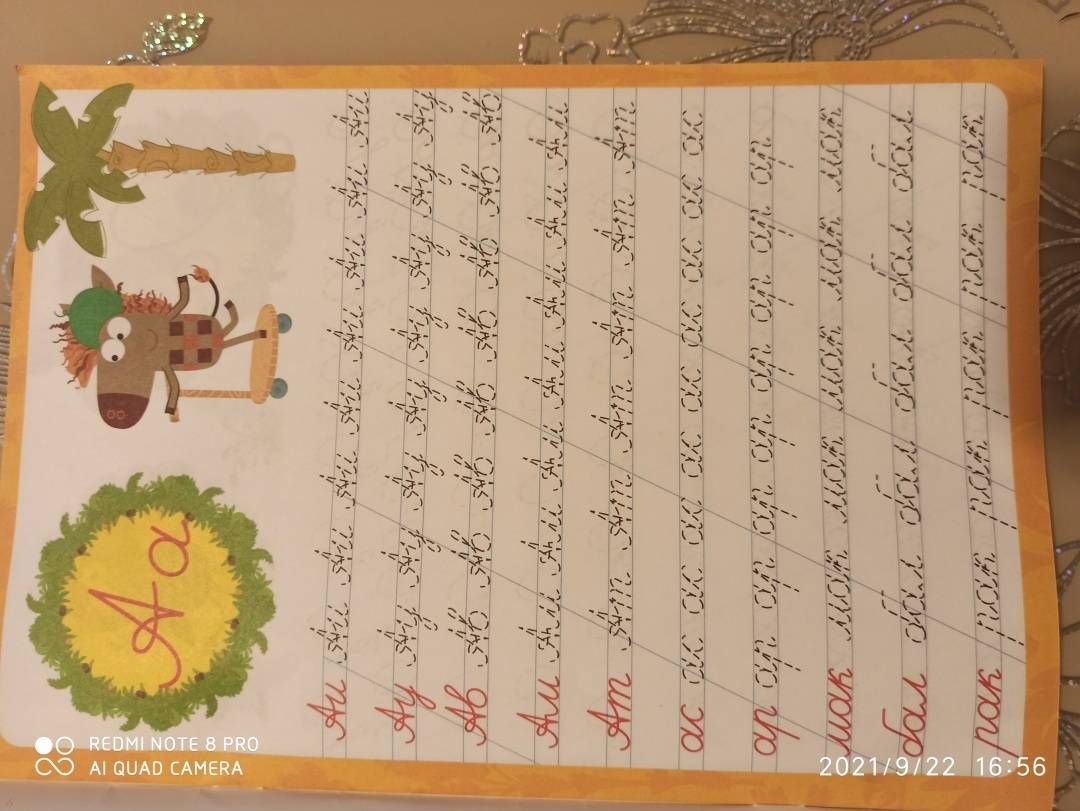 А а
Аи Аи Аи Аи Аи Аи Аи Аи Аи
Ау Ау Ау Ау Ау Ау Ау Ау Ау
Ав Ав Ав Ав Ав Ав Ав Ав Ав
Ам Ам Ам Ам Ам Ам Ам Ам
Ат Ат Ат Ат Ат Ат Ат
ас ас ас ас ас ас ас ас ас ас
ар ар ар ар ар ар ар ар ар
мак мак мак мак мак мак
бал бал бал бал бал бал
рак рак рак рак рак рак
REDMI NOTE 8 PRO
AI QUAD CAMERA
2021/9/22 16:56